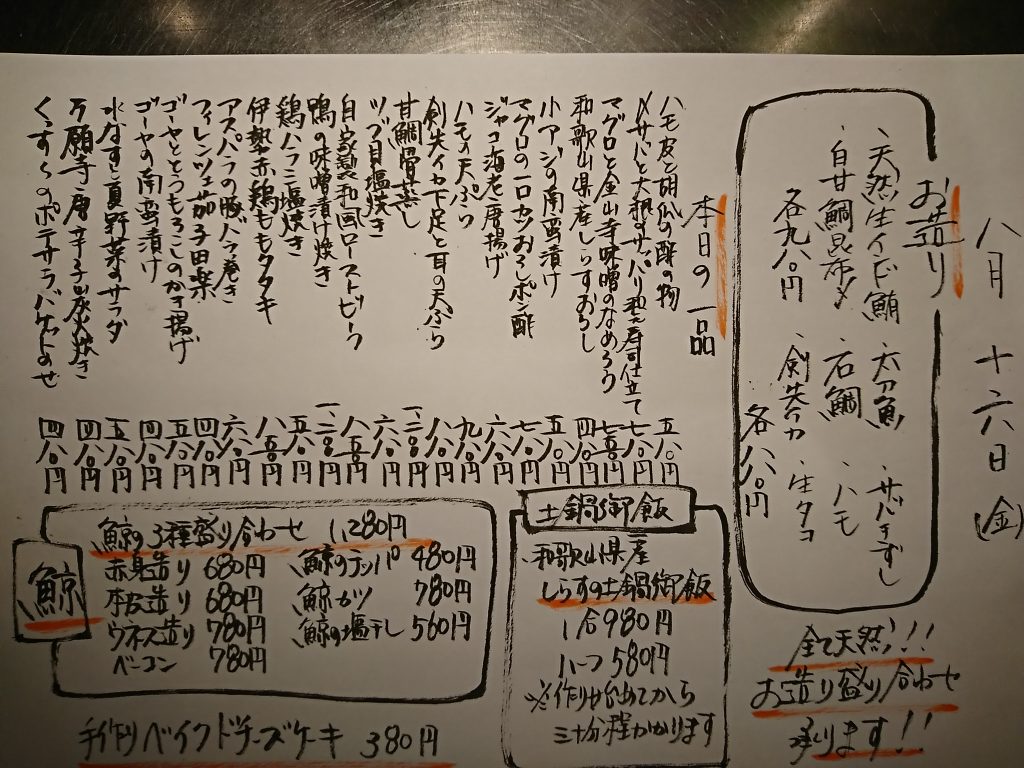 八月 十六日 (金)
お造り
・天然生インド鮪 ・太刀魚
・白甘鯛昆布〆 ・石鯛 ・ハモ
各九八〇円 ・剣先イカ ・生タコ
各八八〇円
全て天然!!
お造り盛り合わせ
承ります!!
本日の一品
ハモ皮と胡瓜の酢の物 五八〇円
〆サバと大根のサッパリ和え寿司仕立て 七八〇円
マグロと金山寺味噌のなめろう 七五〇円
和歌山県産しらすおろし 四八〇円
小アジの南蛮漬け 五八〇円
マグロの一口カツおろしポン酢 七八〇円
ジャコ海老唐揚げ 六八〇円
ハモの天ぷら 九八〇円
剣先イカ下足と耳の天ぷら 八八〇円
甘鯛骨蒸し
ツブ貝塩焼き 六八〇円
自家製和風ローストビーフ 八五〇円
鴨の味噌漬け焼き
鶏ハラミ塩焼き 五八〇円
伊勢赤鶏ももタタキ 八五〇円
アスパラの豚バラ巻き 六八〇円
フィレンツェ茄子田楽 四八〇円
ゴーヤととうもろこしのかき揚げ 五八〇円
ゴーヤの南蛮漬け 四八〇円
水なすと夏野菜のサラダ 五八〇円
万願寺唐辛子山椒焼き 四八〇円
くずし のポテサラバケットのせ 四八〇円
土鍋御飯
和歌山県産
しらすの土鍋御飯
1合980円
ハーフ580円
※作り始めてから
三十分程かかります
鯨
鯨の3種盛り合わせ 1,280円
赤身造り 680円 鯨のテッパ 480円
本皮造り 680円 鯨カツ 780円
ウネス造り 780円 鯨の塩干し 560円
ベーコン 780円
手作りベイクドチーズケーキ 380円